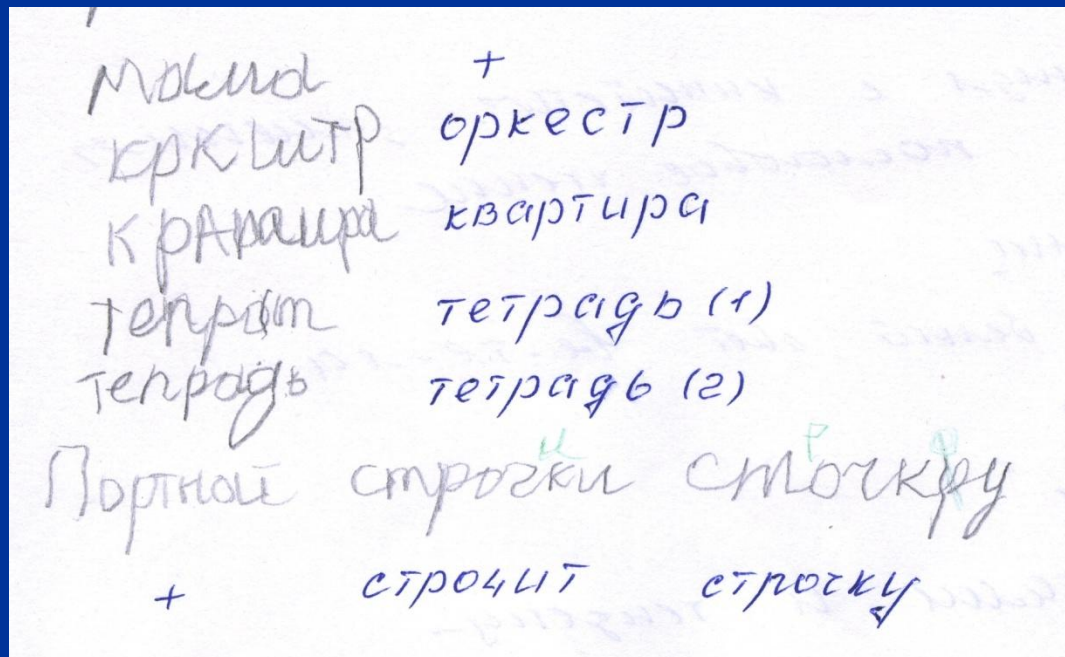 мама +
кркштр оркестр
крАраира квартира
тепрат тетрадь (1)
тепрадь тетрадь (2)
Портной строчки сточкру
+ строчит строчку